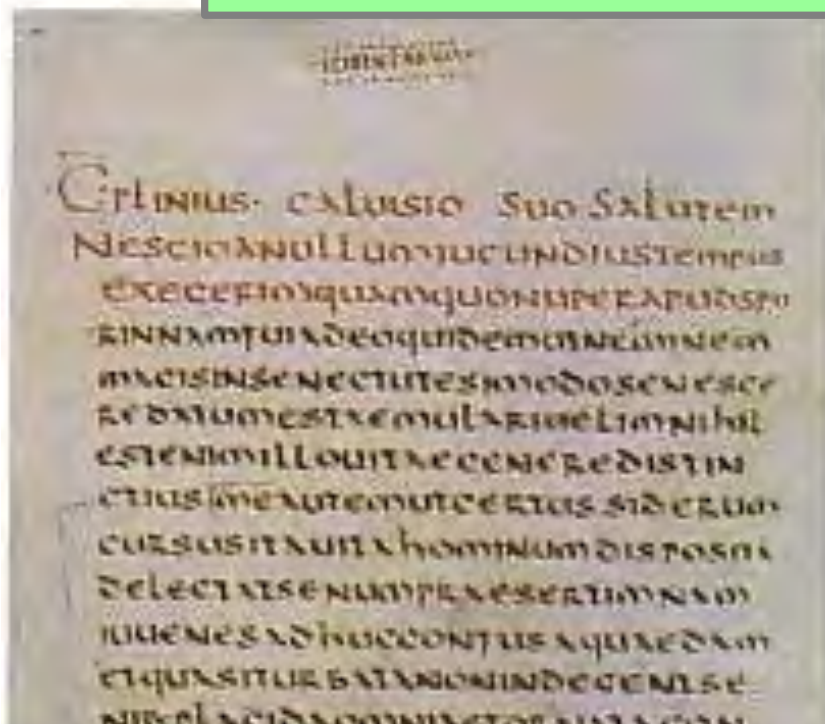 C·PLINIUS· CALUISIO SUO SALUTEM
NESCIOANULLUMIUCUNDIUSTEMPUS
EXEGERIMQUAMQUONUPERAPUDSPU
RINNAMFUIADEOQUIDEMUTNEMINEM
MAGISINSENECTUTESIMODOSENESCE
REDATUMESTAEMULARIUELIMNIHIL
ESTENIMILLOUITAEGENEREDISTIN
CTIUSMEAUTEMUTCERTUSSIDERUM
CURSUSITAUITAHOMINUMDISPOSITA
DELECTATSENUMPRAESERTIMNAM
IUUENESADHUCCONFUSAQUAEDAM
ETQUASITURBATANONINDECENTSE